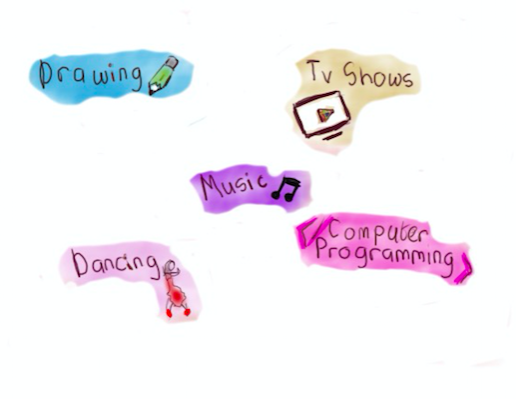 Drawing
Tv Shows
Music
Computer
Programming
Dancing